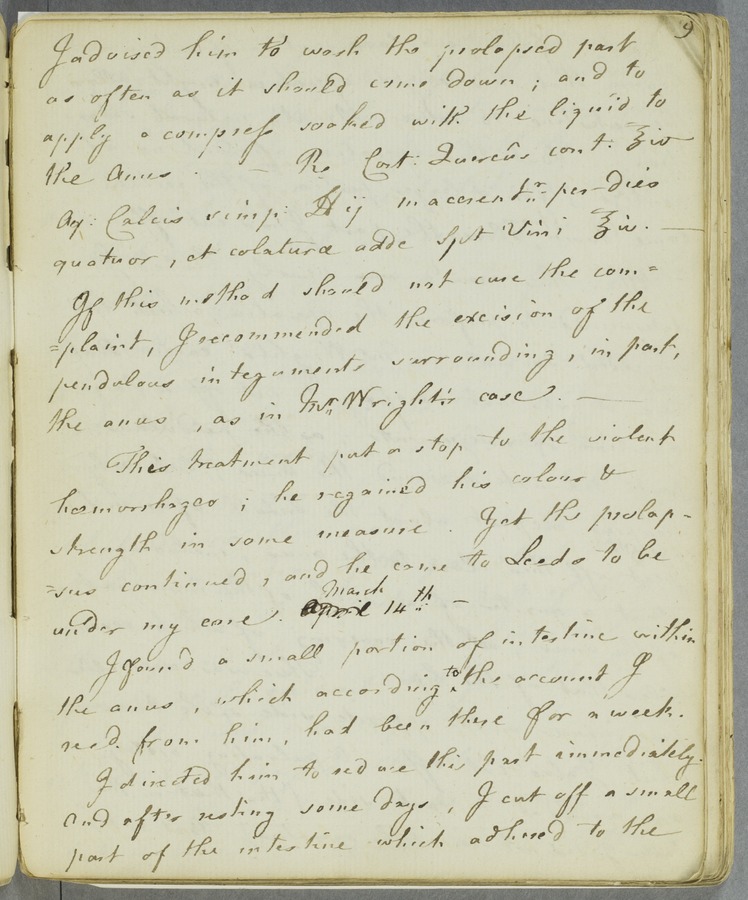 9
I advised him to wash the prolapsed part
as often as it should come down ; and to
apply a compress soaked with the liquid to
the Anus . — Rx Cort: Quercûs cont: ʒiv
Aq: Calcis simp: ℔ij macerentr. per dies
quatuor, et colaturæ adde Spt Vini ʒiv. —
If this method should not cure the com=
=plaint, I recommended the excision of the
pendulous integuments surrounding, in part,
the anus , as in Mrs. Wright's case . —
This treatment put a stop to the violent
hæmorrhages ; he regained his colour &
strength in some measure . Yet the prolap-
=sus continued ; and he came to Leeds to be
under my care. April March 14th —
I found a small portion of intestine within
the anus , which according to the account I
recd. from him, had been there for a week.
I directed him to reduce this part immediately.
and after resting some days , I cut off a small
part of the intestine which adhered to the